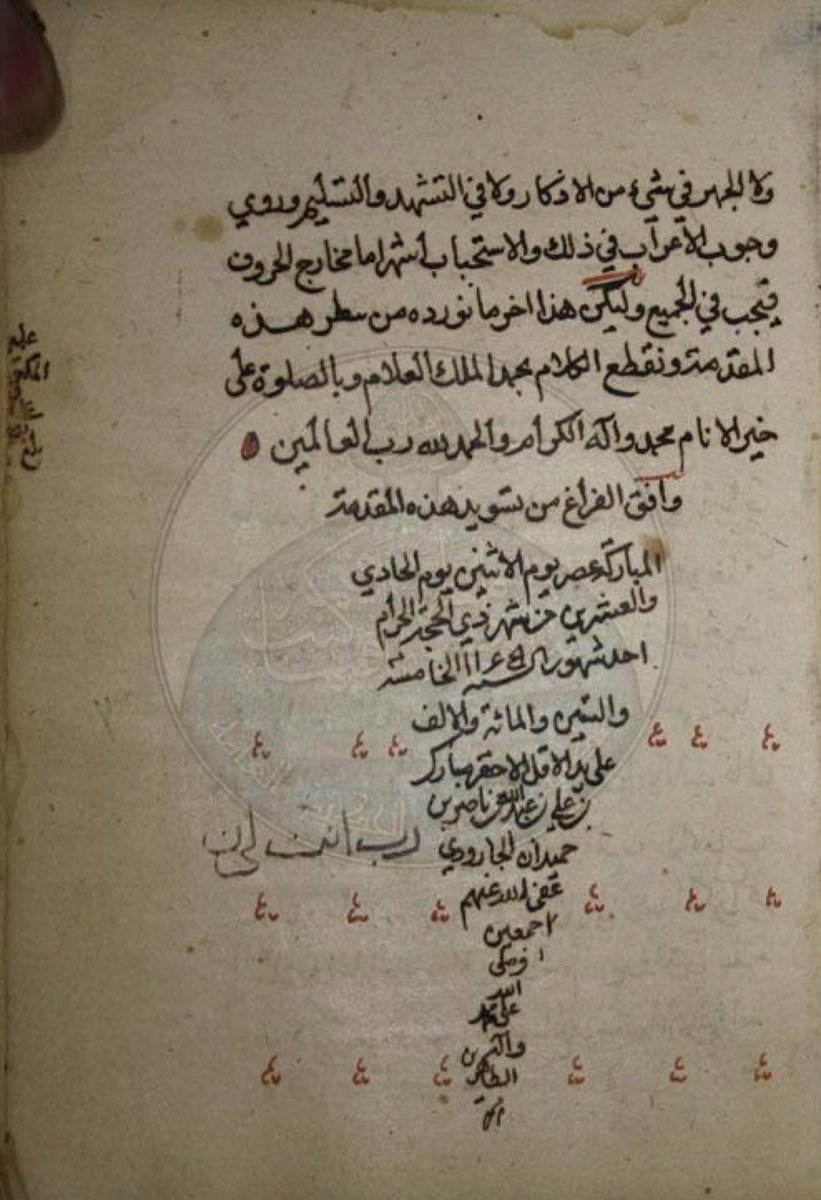 ولا الجهر في شيء من الاذكار ولا في التشهد والتسليم وروي
وجوب الاعراب في ذلك والاستحباب أشهر اما مخارج الحروف
فيجب في الجميع وليكن هذا اخر ما نورده من سطر هذه
المقدمة ونقطع الكلام بحمد الملك العلام وبالصلوة على
خير الانام محمد واله الكرام والحمد لله رب العالمين
وافق الفراغ من تسويد هذه المقدمة
المباركة عصر يوم الاثنين يوم الحادي
والعشرين من شهر ذي الحجة الحرام
احد شهور السنة الخامسة
والستين والمائة والالف
على يد الاقل الاحقر مبارك
بن علي بن عبد الله بن ناصر بن
حميدان الجارودي
عفى الله عنهم
اجمعين
وصلى
الله
على محمد
واله
الطاهرين
رب انت